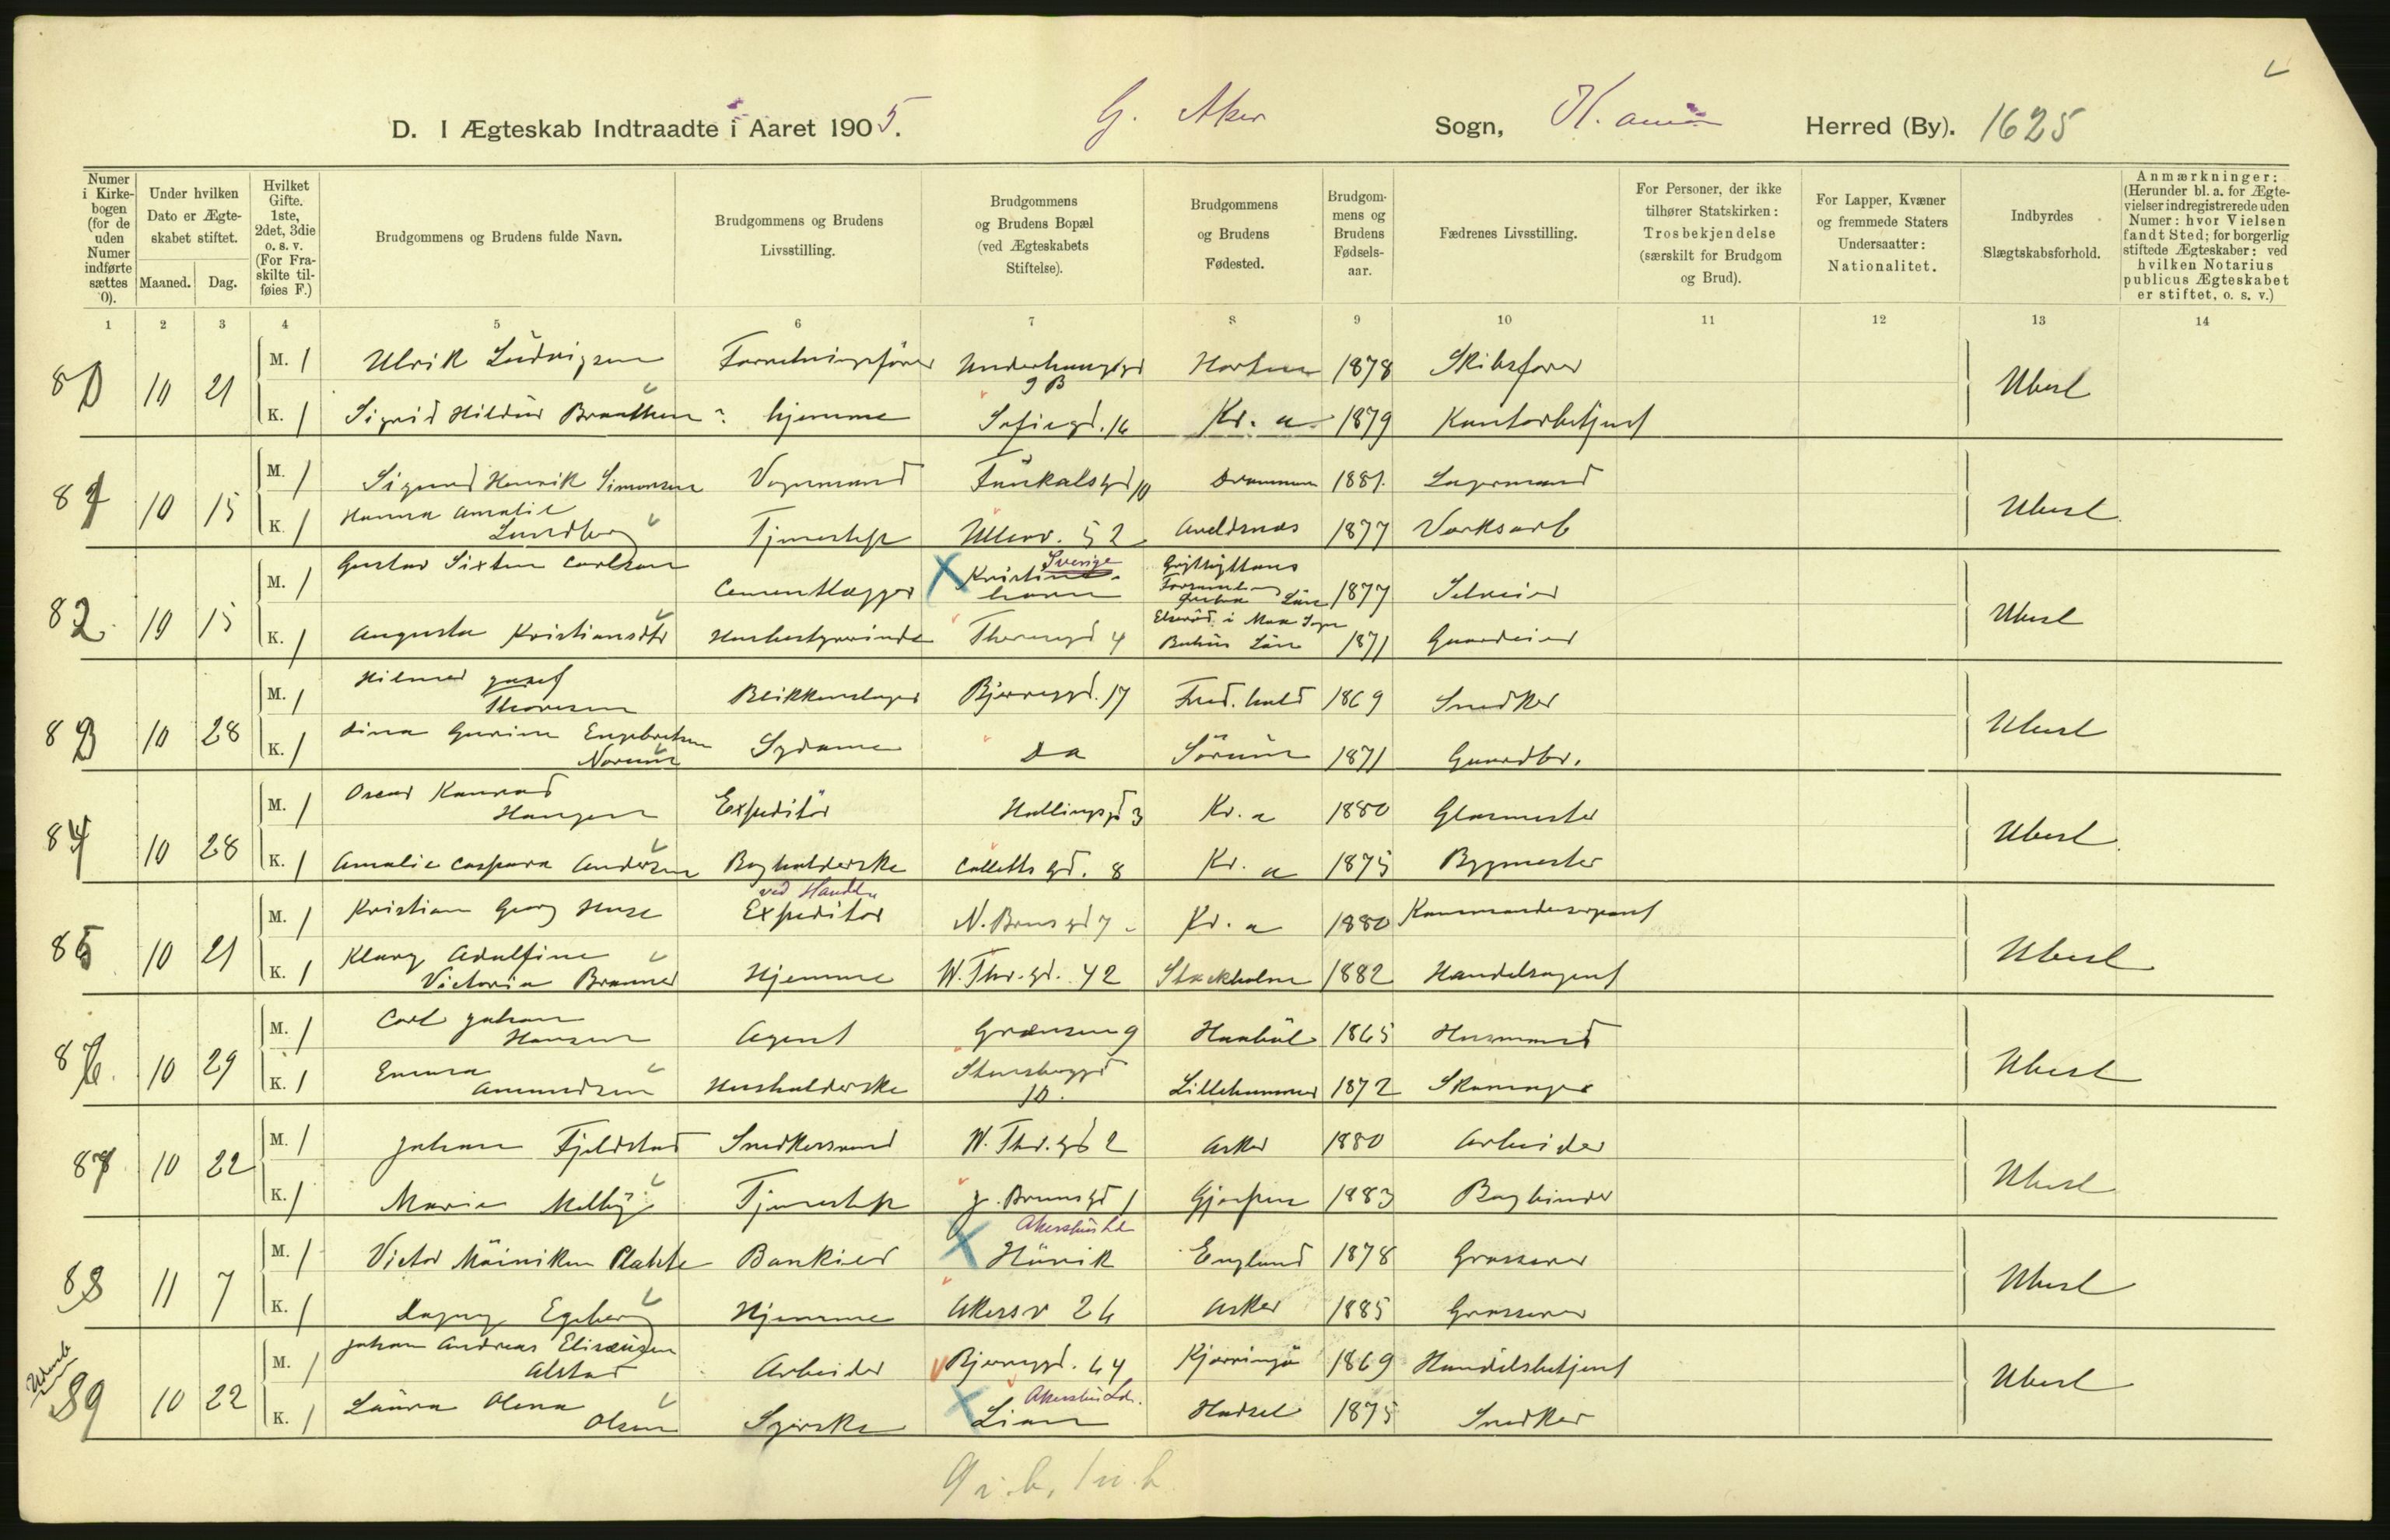 D. I Ægteskab Indtraadte i Aaret 1905. G. Aker Sogn, Herred (By). 1625
Numer i Kirke-bogen (for de uden Numer indførte sættes 0).
Under hvilken Dato er Ægte-skabet stiftet.
Maaned. Dag.
Hvilket Gifte. 1ste, 2det, 3die o. s. v. (For Fra-skilte til-føies F.)
Brudgommens og Brudens fulde Navn.
Brudgommens og Brudens Livsstilling.
Brudgommens og Brudens Bopæl (ved Ægteskabets Stiftelse).
Brudgommens og Brudens Fødested.
Brudgom-mens og Brudens Fødsels-aar.
Fædrenes Livsstilling.
For Personer, der ikke tilhører Statskirken: Trosbekjendelse (særskilt for Brudgom og Brud).
For Lapper, Kvæner og fremmede Staters Undersaatter: Nationalitet.
Indbyrdes Slægtskabsforhold.
Anmærkninger: (Herunder bl. a. for Ægte-vielser indregistrerede uden Numer: hvor Vielsen fandt Sted; for borgerlig stiftede Ægteskaber: ved hvilken Notarius publicus Ægteskabet er stiftet, o. s. v.)
1 2 3 4 5 6 7 8 9 10 11 12 13 14
80 10 21 M. 1 Ulrik Ludvigsen Forretningsfører 9 B Horten 1878 Skibsfører Ubesl
K. 1 Sigrid Hildur Braathen hjemme Sofiegd. 16 Kr. a 1879 Kontorbetjent
81 10 15 M. 1 Sigurd Henrik Simonsen Vognmand 10 Drammen 1881 Lagermand Ubesl
K. 1 Hanna Amalie Lundberg Tjenestep Ullev. 52 1877 Verksarb
82 10 15 M. 1 Gustav Sixten Carlson Cementlægger Kristinehavn Sverige Grythyttans Forsamling Ørebro Län 1877 Selveier Ubesl
K. 1 Augusta Kristiansdtr Theresegd 4 Bohus Län 1871 Gaardeier
83 10 28 M. 1 Hilmar Josef Thoresen Blikkenslager Bjerregd. 17 Fred.hald 1869 Snedker Ubesl
K. 1 Dina Gurine Engebretsen Norum Sydame Da Sörum 1871 Gaardbr.
84 10 28 M. 1 Oscar Konrad Hansen Expeditör Hallingsgd 3 Kr. a 1880 Glasmester Ubesl
K. 1 Amalie Caspara Andersen Bogholderske Colletts gd. 8 Kr. a 1875 Bygmester
85 10 21 M. 1 Kristian Georg Huse ved Handel Expeditör N. Bruns gd 7 Kr. a 1880 Kommandersergeant Ubesl
K. 1 Klary Adolfine Victoria Brunner Hjemme W. Thr. gd. 42 Stockholm 1882 Handelsagent
86 10 29 M. 1 Carl Johan Hansen Agent Grænsen 9 Haaböl 1865 Husmand Ubesl
K. 1 Emma Amundsen Husholderske Stensberggd 10. Lillehammer 1872 Skomager
87 10 22 M. 1 Johan Fjeldstad Snedkersvend W. Thr. gd 2 Asker 1880 Arbeider Ubesl
K. 1 Marie Melby Tjenestep J. Bruns gd 1 Gjerpen 1883 Bogbinder
88 11 7 M. 1 Victor Plahte Bankier Akershus Hövik England 1878 Grosserer Ubesl
K. 1 Dagny Egeberg Hjemme Akersv 26 Asker 1885 Grosserer
89 10 22 M. 1 Johan Andreas Eliseussen Alstad Arbeider Bjerregd. 64 Kjerringö 1869 Handelsbetjent Ubesl
K. 1 Laura Olena Olsen Syerske Akershus Lian Hadsel 1875 Snedker